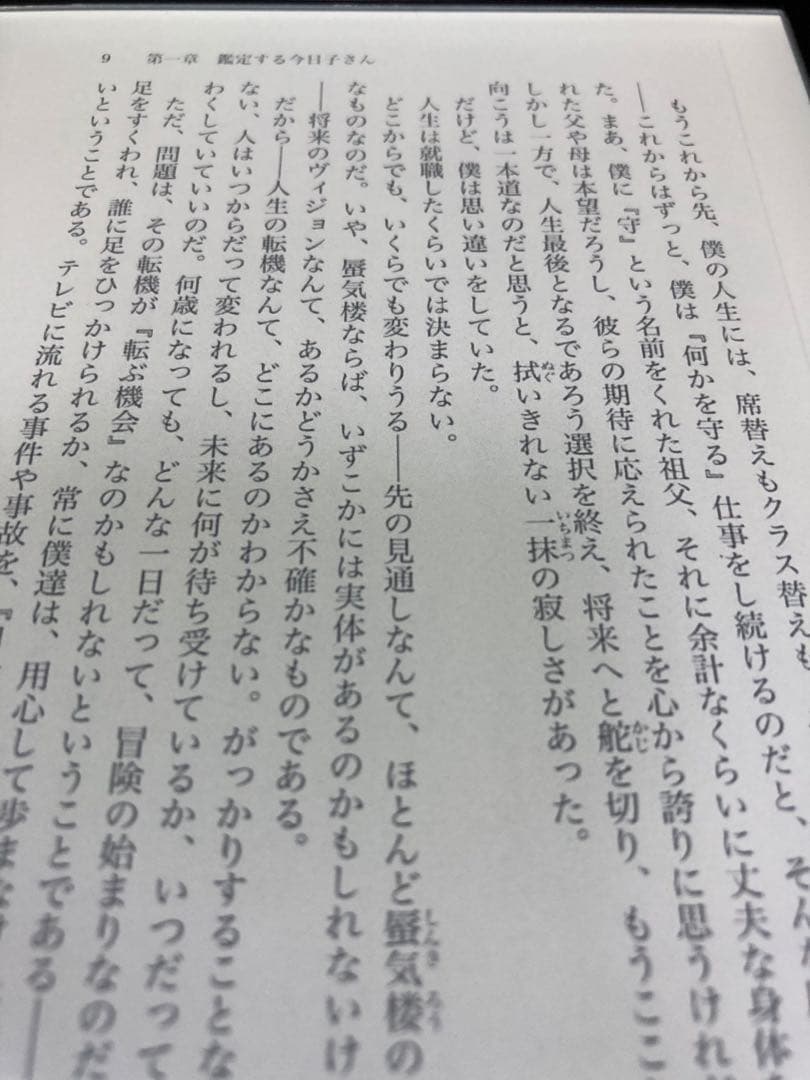 9 第一章 鑑定する今日子さん
もうこれから先、僕の人生には、席替えもクラス替えも
――これからはずっと、僕は『何かを守る』仕事をし続けるのだと、そんな
た。まあ、僕に『守』という名前をくれた祖父、それに余計なくらいに丈夫な身体
れた父や母は本望だろうし、彼らの期待に応えられたことを心から誇りに思うけれ
しかし一方で、人生最後となるであろう選択を終え、将来へと舵を切り、もうここ
向こうは一本道なのだと思うと、拭いきれない一抹の寂しさがあった。
だけど、僕は思い違いをしていた。
人生は就職したくらいでは決まらない。
どこからでも、いくらでも変わりうる――先の見通しなんて、ほとんど蜃気楼の
なものなのだ。いや、蜃気楼ならば、いずこかには実体があるのかもしれないけ
――将来のヴィジョンなんて、あるかどうかさえ不確かなものである。
だから――人生の転機なんて、どこにあるのかわからない。がっかりすることな
ない、人はいつからだって変われるし、未来に何が待ち受けているか、いつだって
わくしていていいのだ。何歳になっても、どんな一日だって、冒険の始まりなのだ
ただ、問題は、その転機が『転ぶ機会』なのかもしれないということである――
足をすくわれ、誰に足をひっかけられるか、常に僕達は、用心して歩まなけ
いということである。テレビに流れる事件や事故を、『